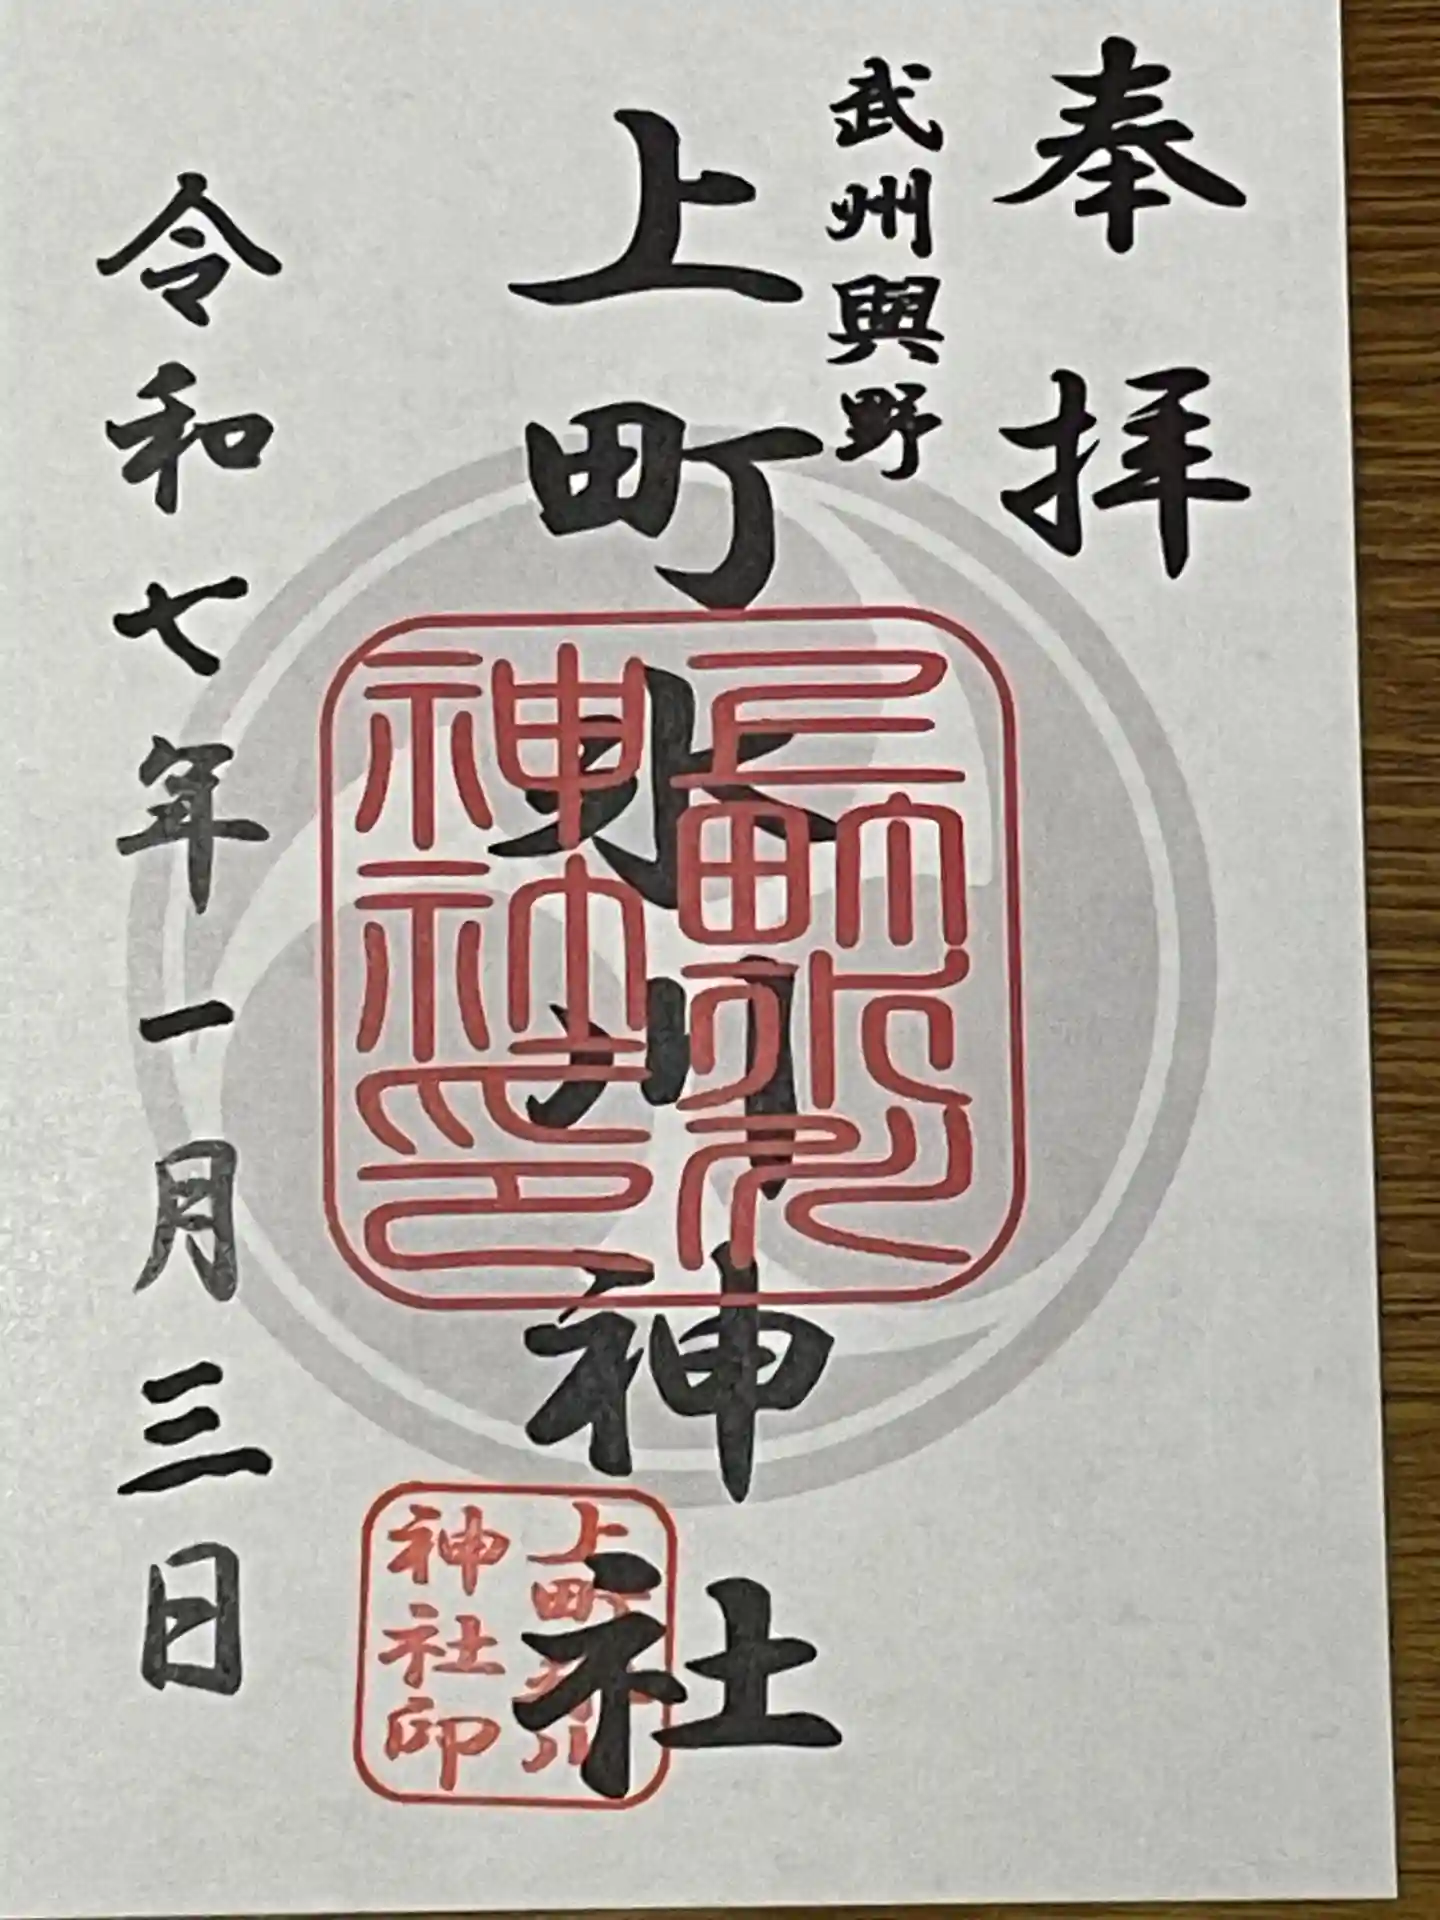 奉拝
武州與野
上町氷川神社
上町氷川
神社印
上町氷川
神社印
令和七年一月三日